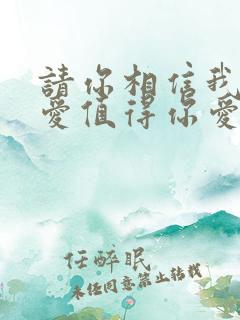 請你相信我
愛值得你愛
任醉眠
未任同意禁止转载